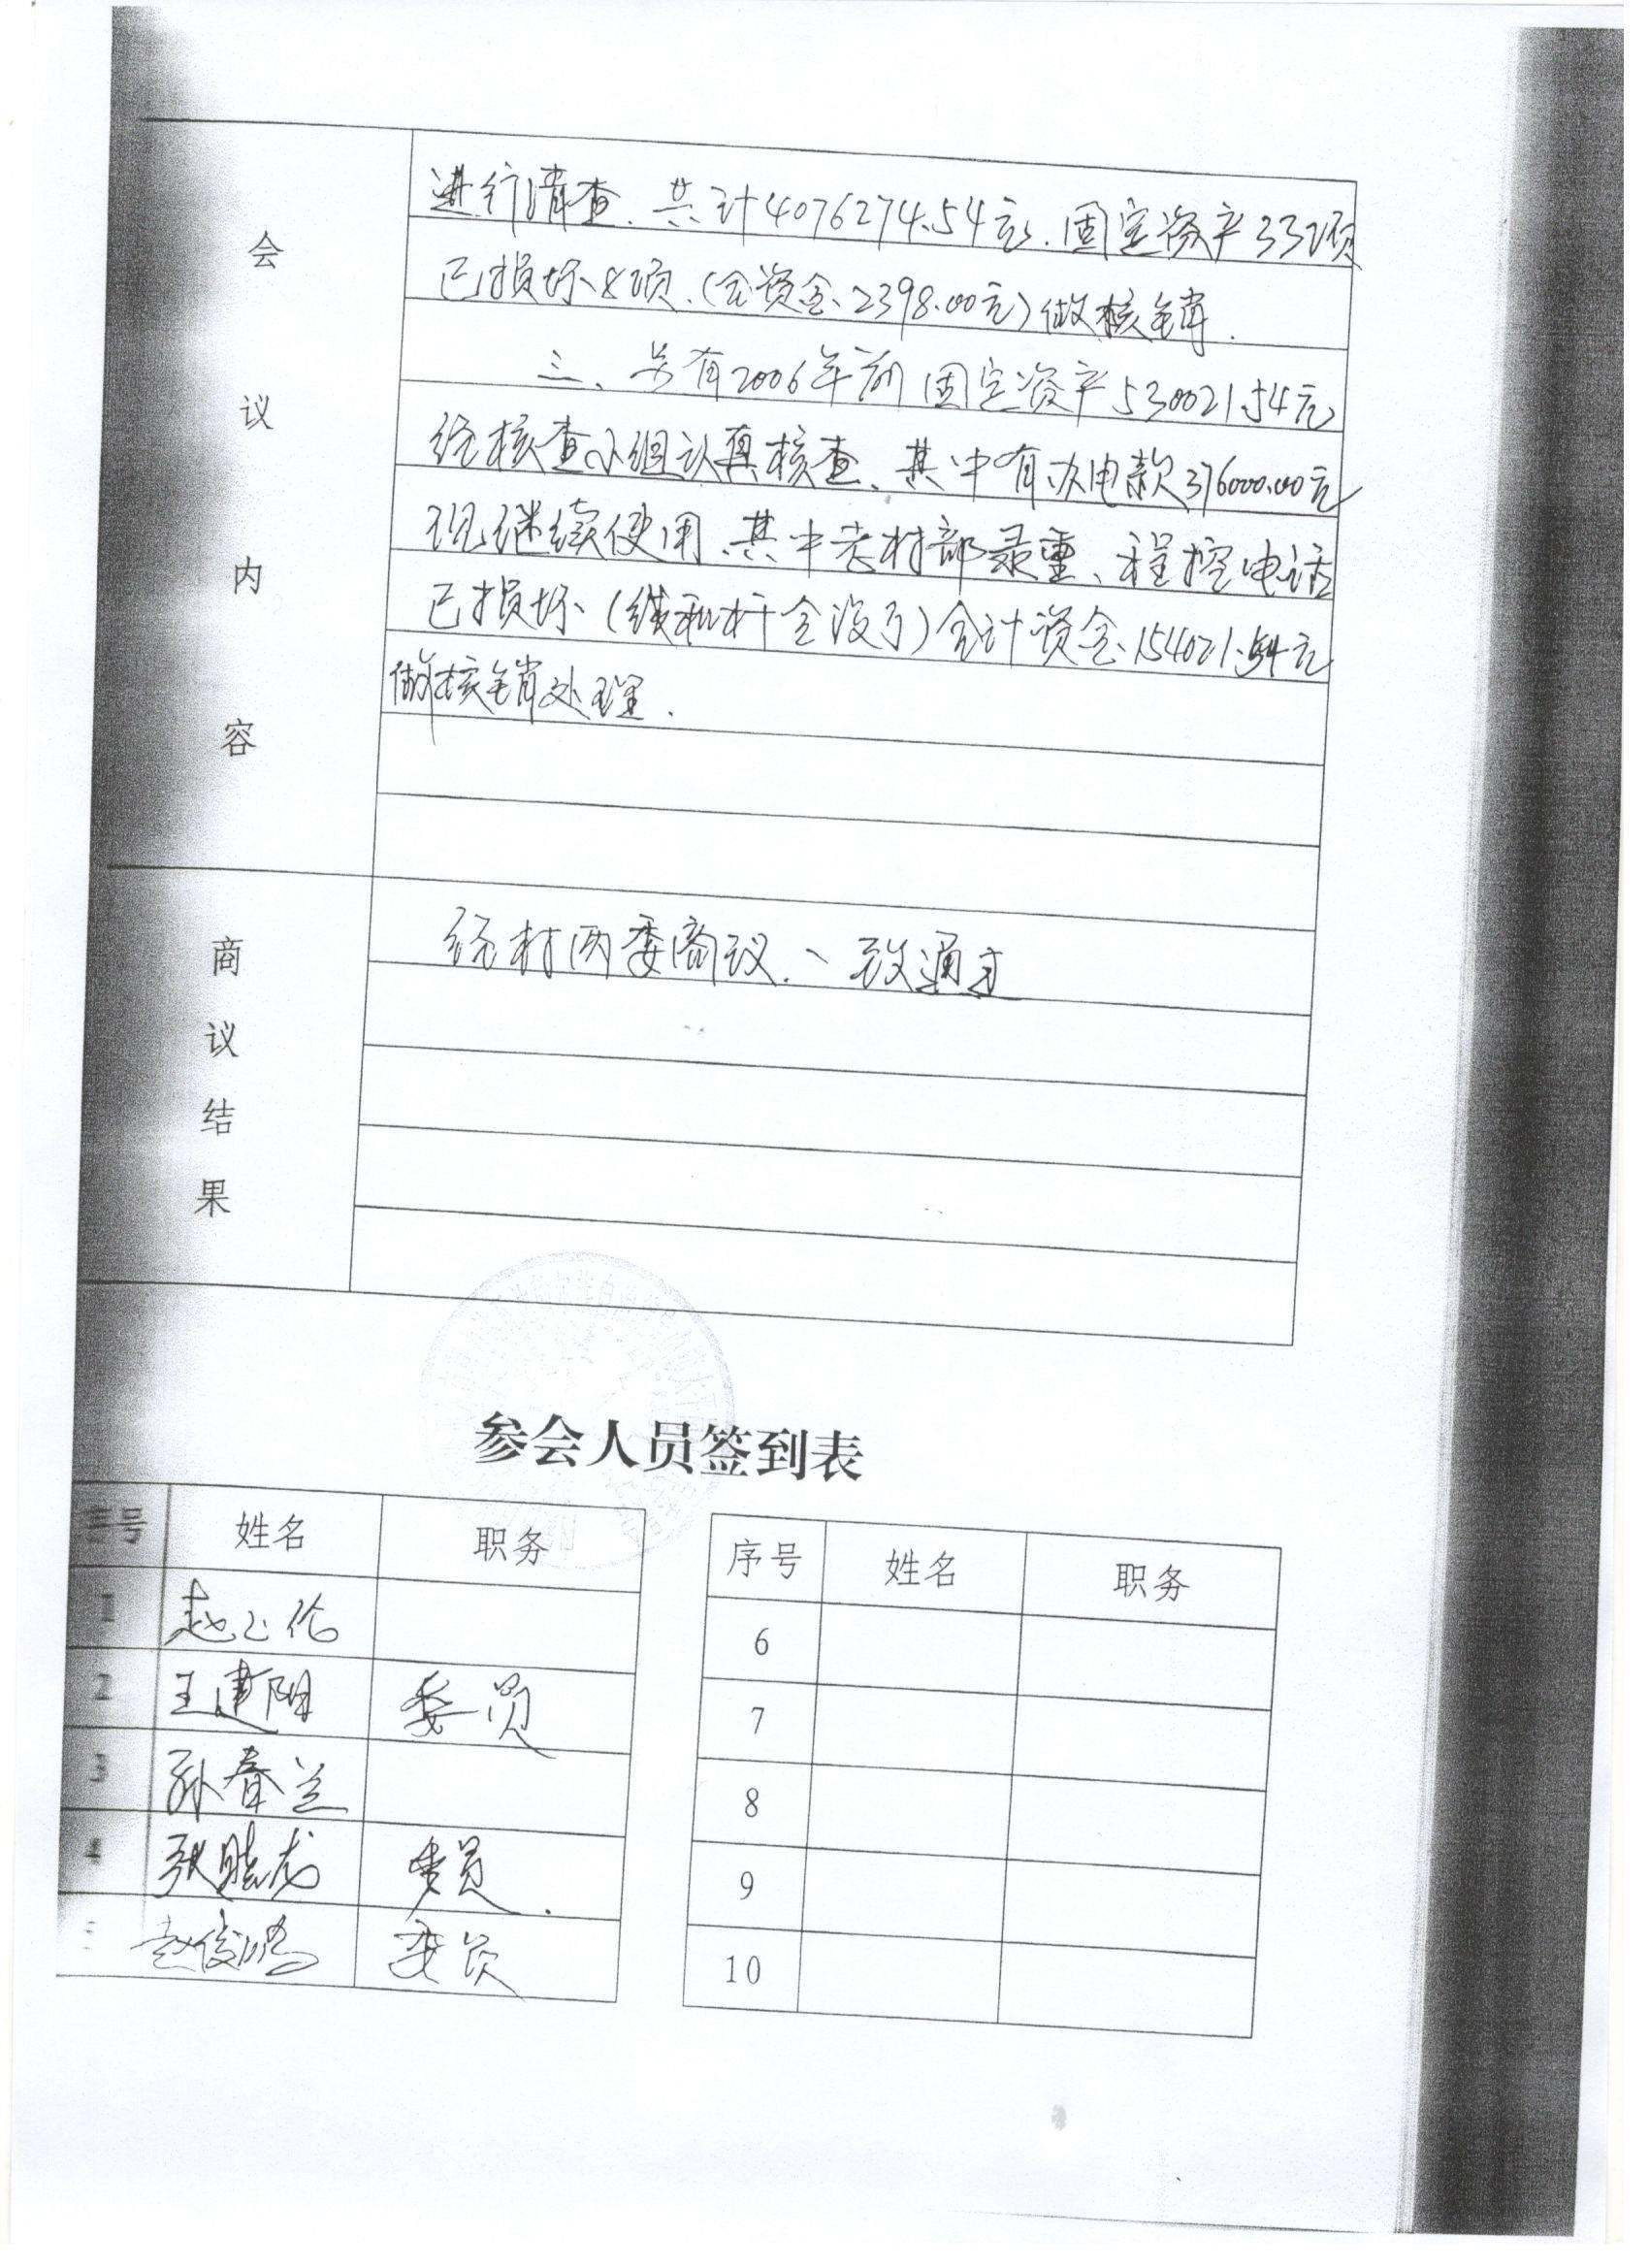 会议内容
进行清查、共计4076274.54元、固定资产33项
已损坏8项、(合资金、2398.00元)做核销.
三、另有2006年前固定资产530021.54元
经核查小组认真核查、其中有办电款376000.00元
现继续使用、其中老村部录重、程控电话
已损坏(线和杆全没了)合计资金、154021.54元
做核销处理.
商议结果
经村两委商议、一致通过
参会人员签到表
序号 姓名 职务 序号 姓名 职务
1 赵 伦 6
2 王建阳 委员 7
3 孙春兰 8
4 张晓龙 委员. 9
赵俊鹏 委员 10